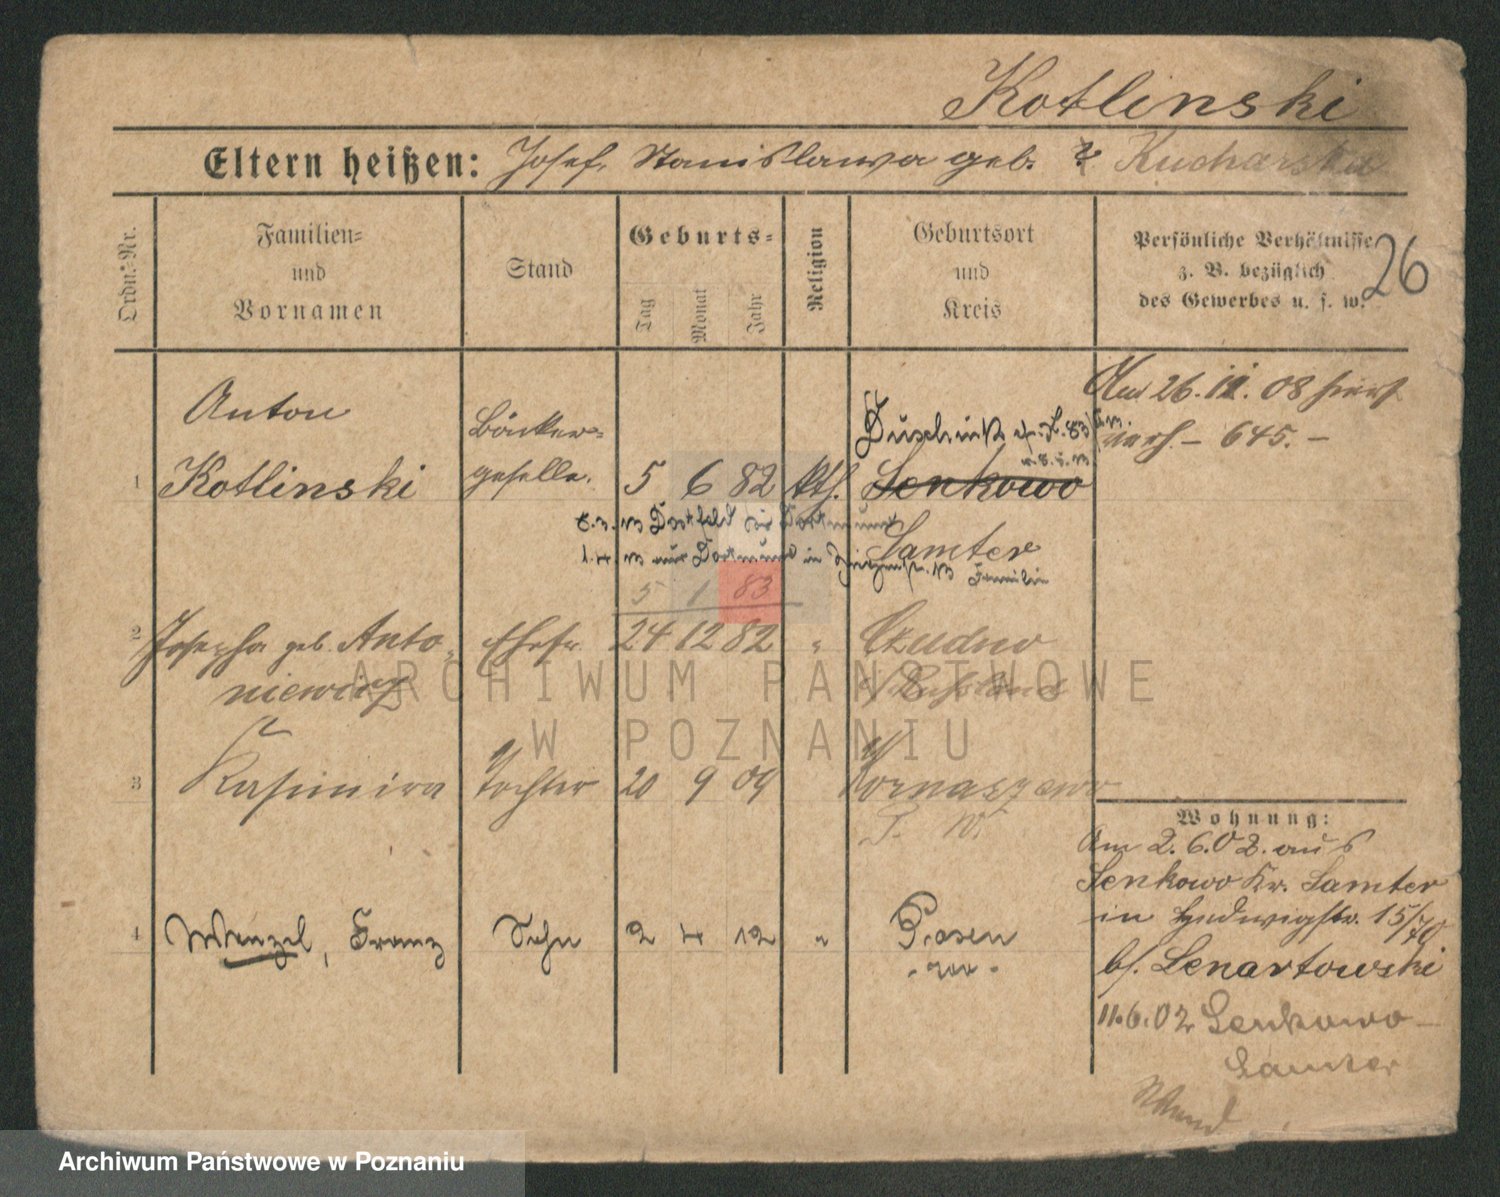 Kotlinski
Eltern heißen: Josef, Stanislawa geb. Kucharska
Ordn.-Nr.
Familien-
und
Vornamen
Stand
Geburts-
Tag
Monat
Jahr
Religion
Geburtsort
und
Kreis
Persönliche Verhältnisse
z. B. bezüglich
des Gewerbes u. s. w.
26
1
Anton
Kotlinski
Bäcker-
geselle.
5 6 82
kth.
Duschnik
Senkowo
Samter
Am 26. 11. 08 hier
verh. – 645. –
8.3.13 Dortfeld bei Dortmund
1.4.13 aus Dortmund in
Familie
5 1 83
2
Josepha geb. Anto-
niewicz
Ehefr.
24 12 82
"
Czudno
Russland
3
Kasimira
Tochter
20 9 09
Kornaszewo
P. W.
4
Wenzel, Franz
Sohn
2 4 12
"
Posen
Wohnung:
Am 2.6.02. aus
Senkowo Kr. Samter
in Hedwigstr. 15/70
b/. Lenartowski
11.6.02 Senkowo –
Samter
ARCHIWUM PAŃSTWOWE
W POZNANIU
Archiwum Państwowe w Poznaniu